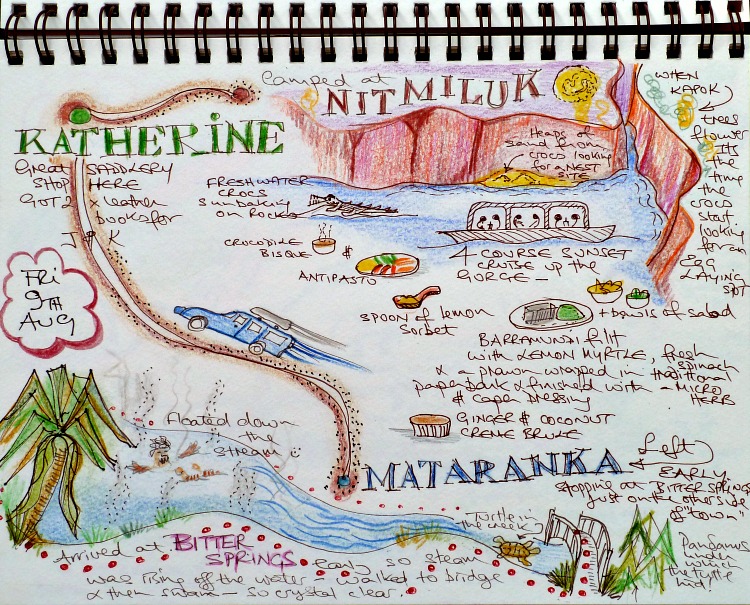 Camped at
NITMILUK
KATHERINE
Great SADDLERY
SHOP HERE
GOT 2 x leather
books for
J & K
FRI
9TH
AUG
WHEN
KAPOK
trees
flower
Its
the
time
the
crocs
start
looking
for an
EGG
LAYING
SPOT
Heaps of
sand from
crocs looking
for a NEST
SITE
FRESHWATER
CROCS
Sunbaking
on Rocks
4 COURSE SUNSET
CRUISE UP the
GORGE -
CROCODILE
BISQUE
&
ANTIPASTO
SPOON of lemon
Sorbet
+ bowls of salad
BARRAMUNDI filit
with LEMON MYRTLE, fresh
spinach
& a prawn wrapped in traditional
paperbark & finished with - MICRO
HERB
& Caper DRESSING
GINGER & COCONUT
CREME BRULE
MATARANKA
Left
EARLY
stopping at BITTER SPRINGS
just on the other side
of "town"
Floated down
the
stream
Turtle in
the creek
Pandanus
under
which
the turtle
hid!
Arrived at BITTER
SPRINGS early, so steam
was rising off the water - walked to bridge
& then swam - so crystal clear.